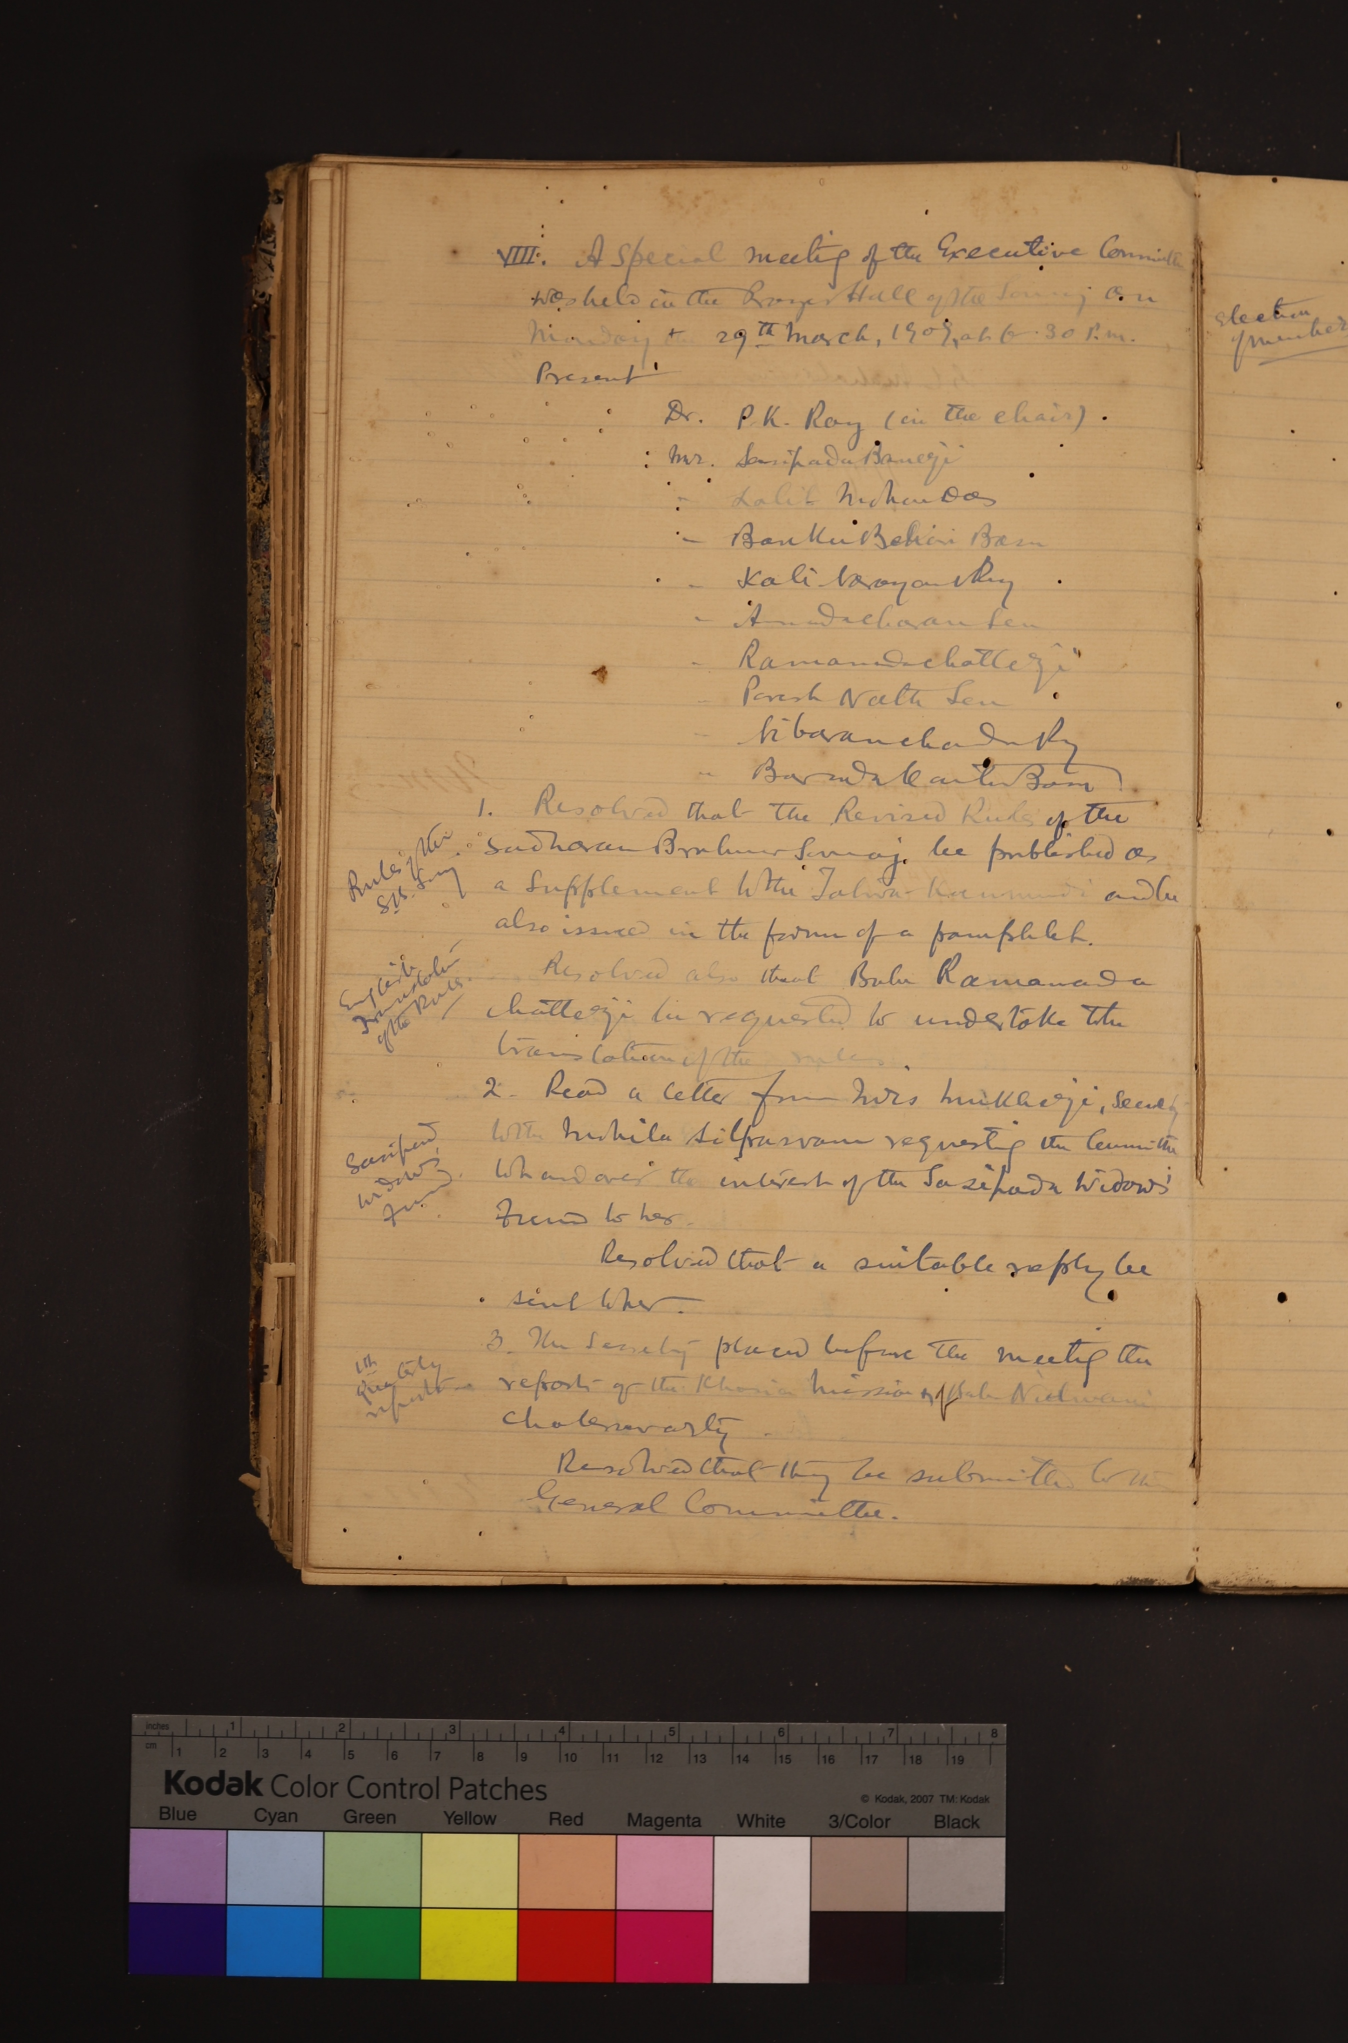 VIII. A Special meeting of the Executive Committee
was held in the Prayer Hall of the Samaj on
Monday the 29th March, 1909, at 6.30 P.m.
Present
Dr. P. K. Ray (in the chair)
Mr. Sasipada Banerji
" Lalit Mohan Das
" Banku Behari Basu
" Kali Narayan Roy
" Annada charan Sen
" Ramananda chatterji
" Paresh Nath Sen
" Nibaran chandra Ry
" Barada Kanta Basu
1. Resolved that the Revised Rules of the
Rules of the
S.B. Samaj
Sadharan Brahmo Samaj be published as
a Supplement to the Tatwa-Kaumudi and be
also issued in the form of a pamphlet.
English
Translation
of the Rules.
Resolved also that Babu Ramananda
chatterji be requested to undertake the
translation of the rules.
2. Read a letter from Mrs Mukherji, Secy
Sasipada
Widows'
Fund
to the Mohila Silpasram requesting the Committee
to hand over the interest of the Sasipada Widows'
Fund to her.
Resolved that a suitable reply be
sent to her.
3. The Secretary placed before the meeting the
Quarterly
report
reports of the Khasia Mission of Babu Nilmani
Chakravarty
Resolved that they be submitted to the
General Committee.
Election
of member
inches 1 2 3 4 5 6 7 8
cm 1 2 3 4 5 6 7 8 9 10 11 12 13 14 15 16 17 18 19
Kodak Color Control Patches
© Kodak, 2007 TM: Kodak
Blue Cyan Green Yellow Red Magenta White 3/Color Black